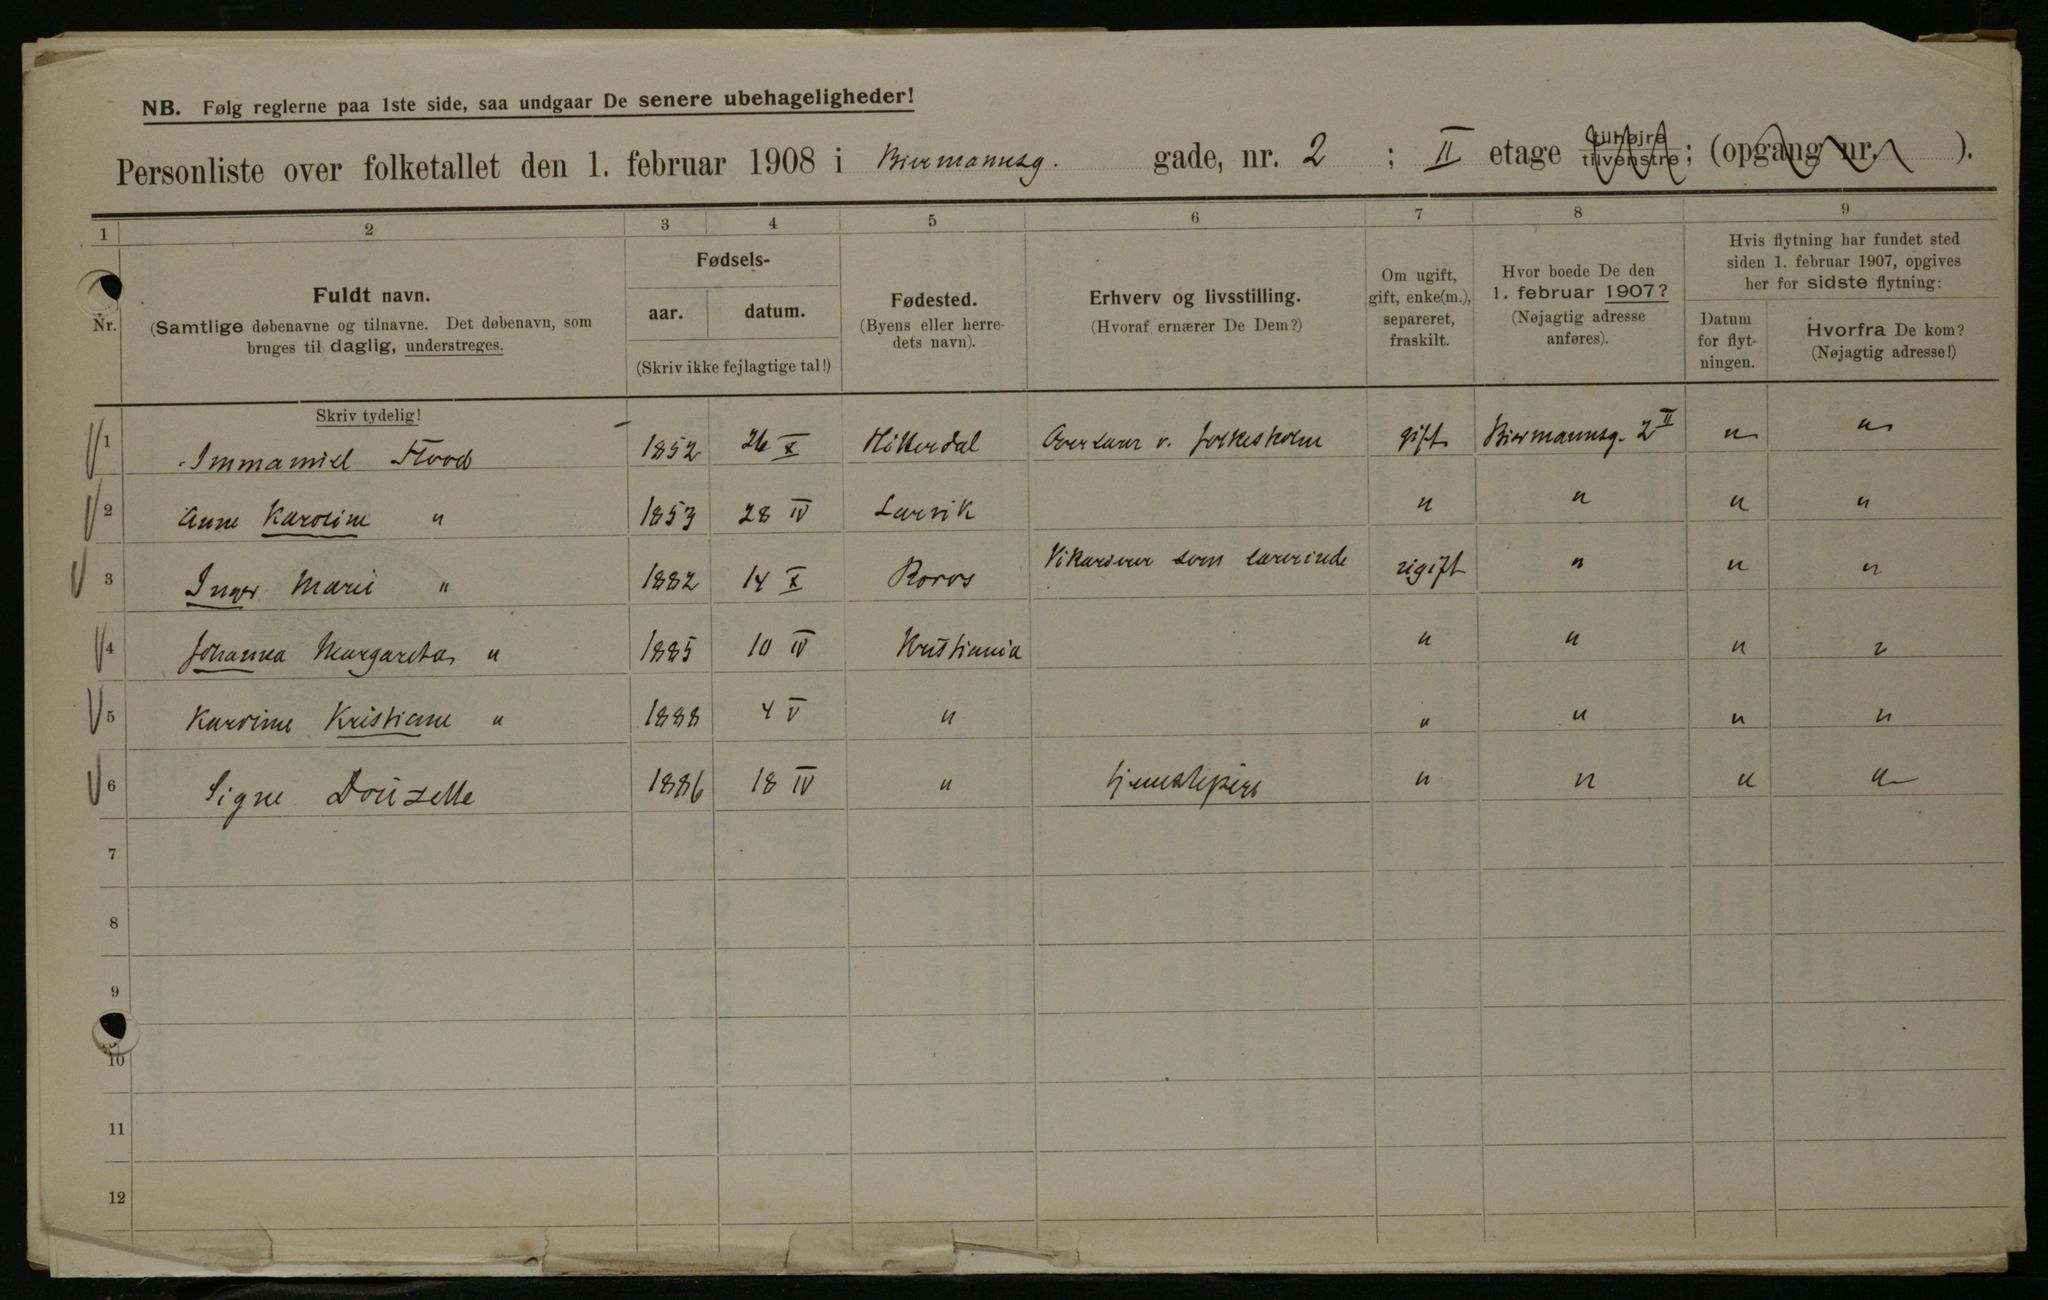 NB. Følg reglerne paa 1ste side, saa undgaar De senere ubehageligheder!
Personliste over folketallet den 1. februar 1908 i Biermannsg. gade, nr. 2 ; II etage tilhøjre tilvenstre; (opgang nr. ).
1 2 3 4 5 6 7 8 9
Nr.
Fuldt navn.
(Samtlige døbenavne og tilnavne. Det døbenavn, som
bruges til daglig, understreges.
Fødsels-
aar. datum.
(Skriv ikke fejlagtige tal!)
Fødested.
(Byens eller herre-
dets navn).
Erhverv og livsstilling.
(Hvoraf ernærer De Dem?)
Om ugift,
gift, enke(m.),
separeret,
fraskilt.
Hvor boede De den
1. februar 1907?
(Nøjagtig adresse
anføres).
Hvis flytning har fundet sted
siden 1. februar 1907, opgives
her for sidste flytning:
Datum
for flyt-
ningen.
Hvorfra De kom?
(Nøjagtig adresse!)
Skriv tydelig!
1 Immanuel Flood 1852 26 X Hitterdal v. folkeskolen gift Biermannsg. 2 II " "
2 Anne Karoline " 1853 28 IV Larvik " " " "
3 Inger Marie " 1882 14 X Roros Vikarierer som lærerinde ugift " " "
4 Johanna Margareta " 1885 10 IV Kristiania " " " "
5 Karoline Kristiane " 1888 4 V " " " " "
6 Signe Douzette 1886 18 IV " tjenestepige " " " "
7
8
9
10
11
12